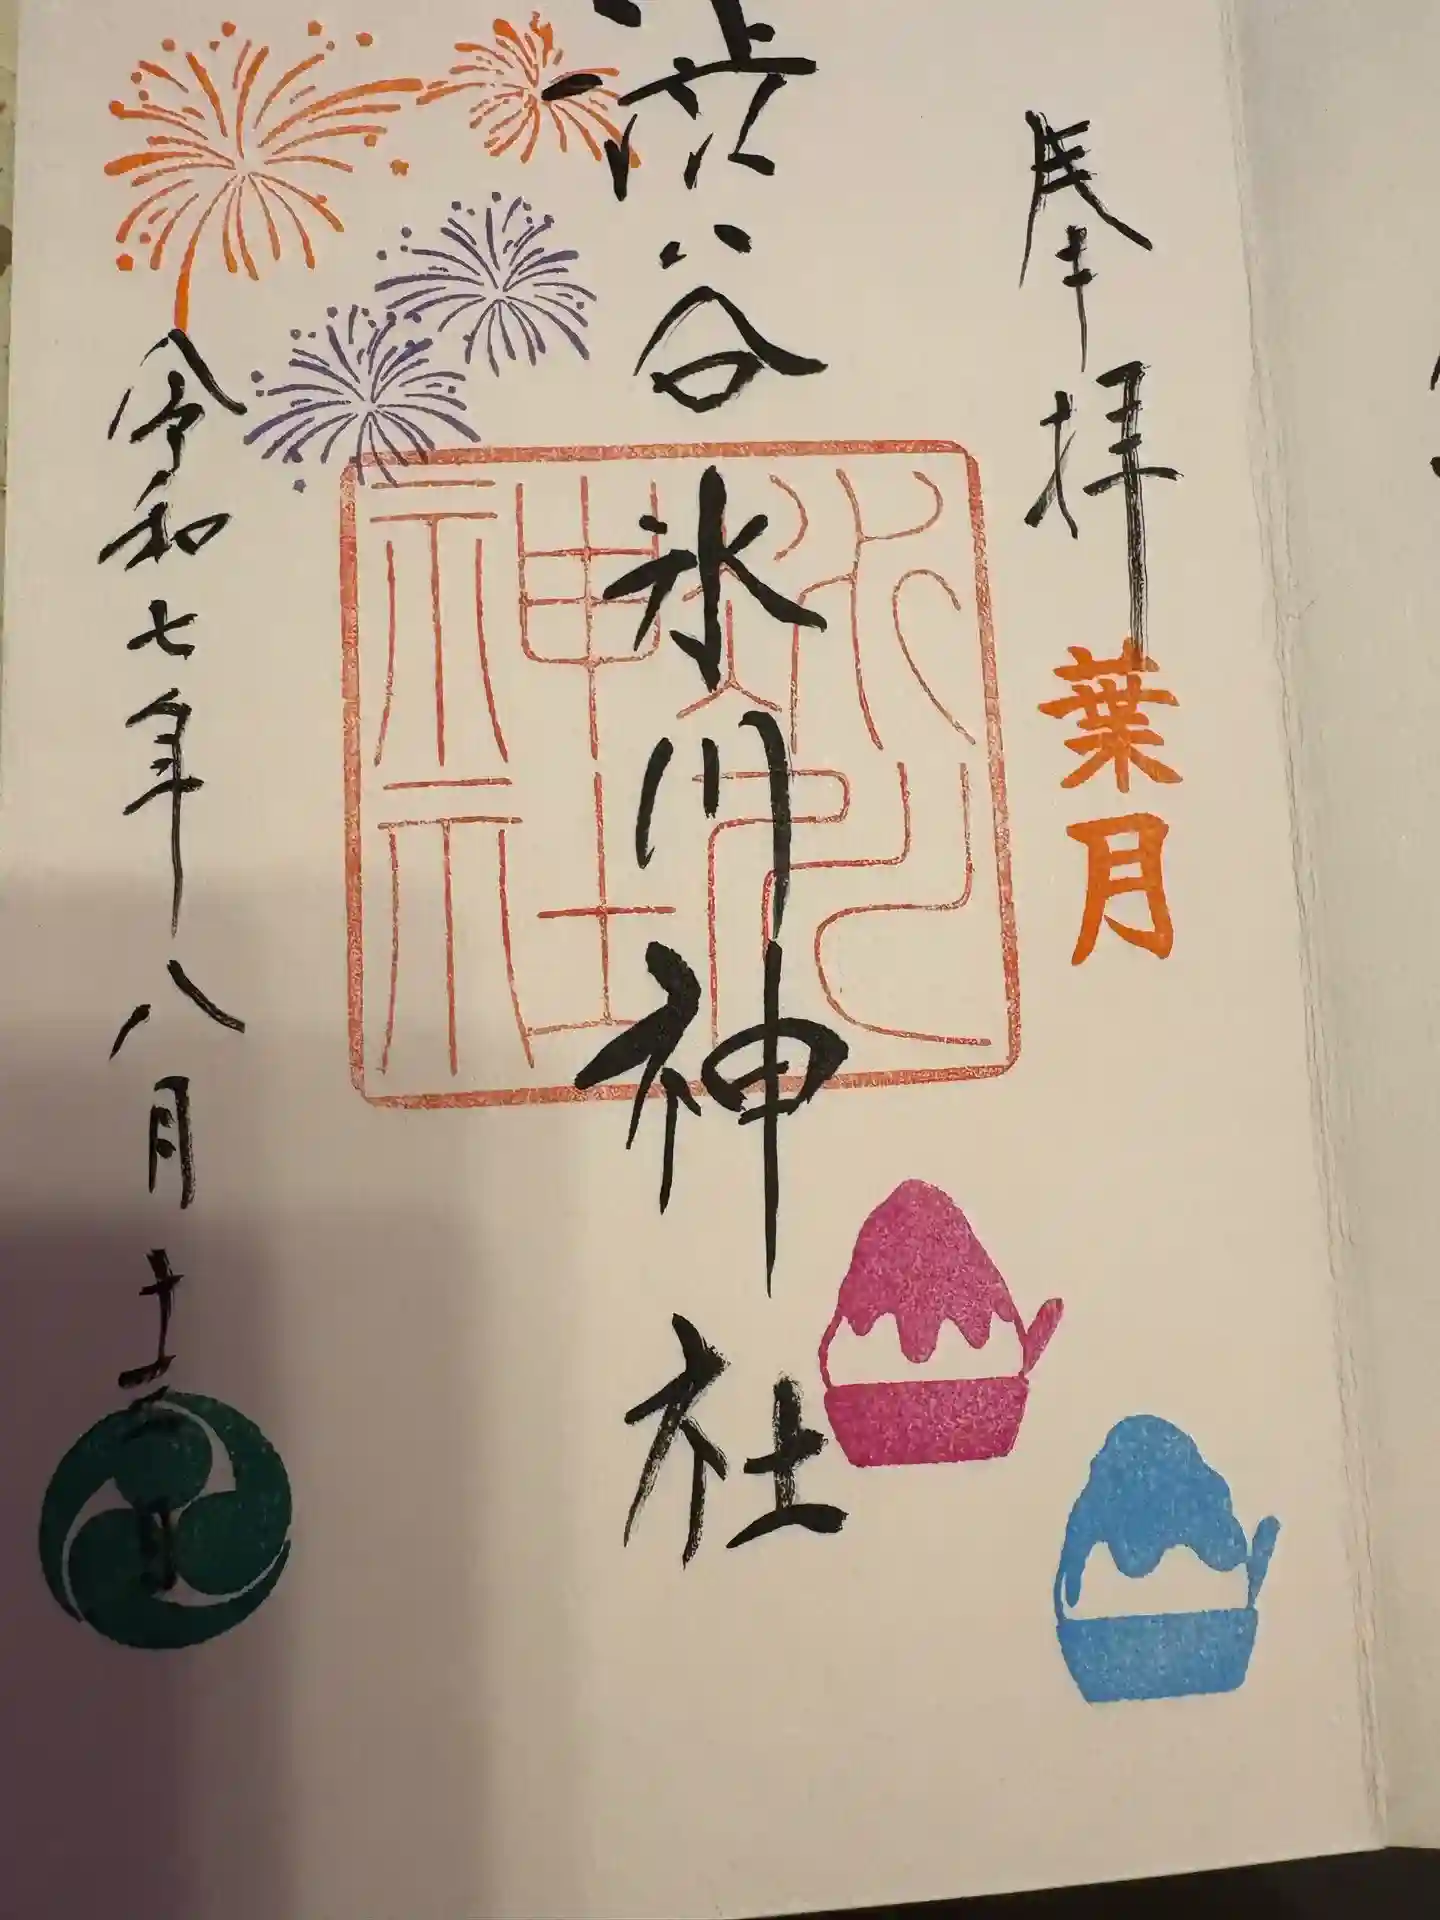 奉拝
葉月
渋谷氷川神社
冰川神社
令和七年八月十三日